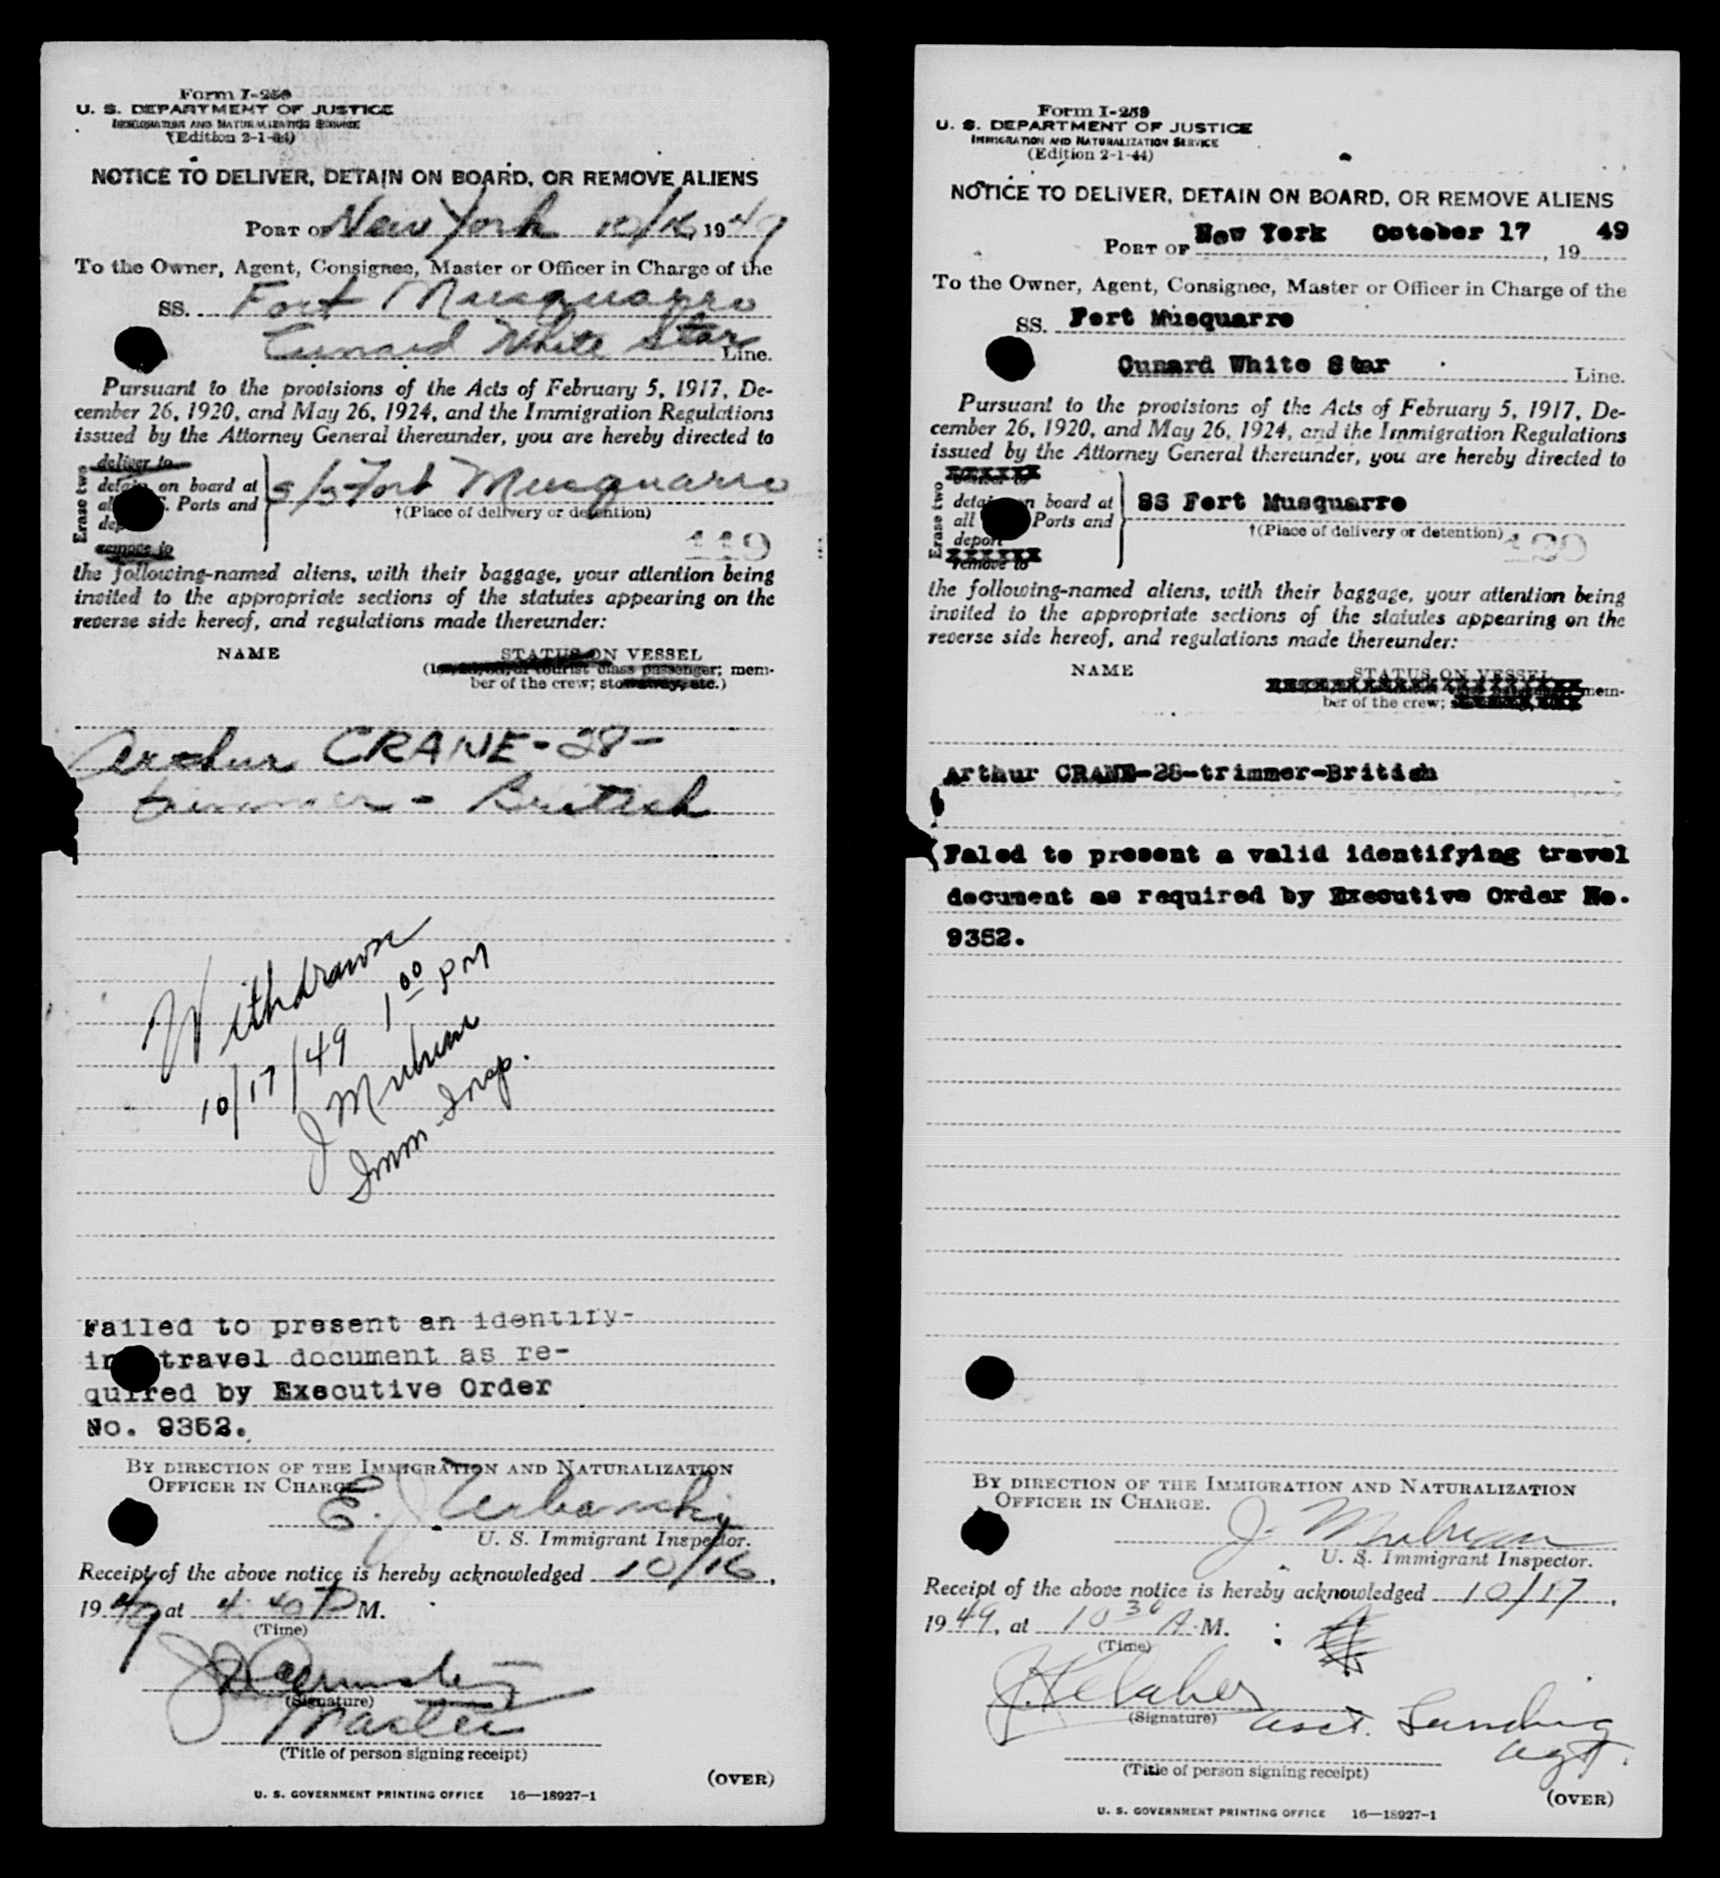 Form I-259
U. S. DEPARTMENT OF JUSTICE
IMMIGRATION AND NATURALIZATION SERVICE
(Edition 2-1-44)
NOTICE TO DELIVER, DETAIN ON BOARD, OR REMOVE ALIENS
PORT OF New York 10/16, 1949
To the Owner, Agent, Consignee, Master or Officer in Charge of the
SS. Fort Musquarro
Cunard White Star Line.
Pursuant to the provisions of the Acts of February 5, 1917, De-
cember 26, 1920, and May 26, 1924, and the Immigration Regulations
issued by the Attorney General thereunder, you are hereby directed to
Erase two
deliver to
detain on board at
all Ports and
remove to
s/s Fort Musquarro
†(Place of delivery or detention)
119
the following-named aliens, with their baggage, your attention being
invited to the appropriate sections of the statutes appearing on the
reverse side hereof, and regulations made thereunder:
NAME STATUS ON VESSEL
tourist class passenger; mem-
ber of the crew; stowaway, etc.)
Arthur CRANE-28-
trimmer - British
Withdrawn
10/17/49 1 00 PM
J Mulrean
Imm. Insp.
Failed to present an identify-
travel document as re-
quired by Executive Order
No. 9352.
BY DIRECTION OF THE IMMIGRATION AND NATURALIZATION
OFFICER IN CHARGE.
E. J Urbanski
U. S. Immigrant Inspector.
Receipt of the above notice is hereby acknowledged 10/16,
1949 at 4.40 P M.
(Time)
(Signature)
Master
(Title of person signing receipt)
(OVER)
U. S. GOVERNMENT PRINTING OFFICE 16—18927-1
Form I-259
U. S. DEPARTMENT OF JUSTICE
IMMIGRATION AND NATURALIZATION SERVICE
(Edition 2-1-44)
NOTICE TO DELIVER, DETAIN ON BOARD, OR REMOVE ALIENS
PORT OF New York October 17, 1949
To the Owner, Agent, Consignee, Master or Officer in Charge of the
SS. Fort Musquarro
Cunard White Star Line.
Pursuant to the provisions of the Acts of February 5, 1917, De-
cember 26, 1920, and May 26, 1924, and the Immigration Regulations
issued by the Attorney General thereunder, you are hereby directed to
Erase two
detain on board at
all Ports and
deport
remove to
SS Fort Musquarro
†(Place of delivery or detention)
120
the following-named aliens, with their baggage, your attention being
invited to the appropriate sections of the statutes appearing on the
reverse side hereof, and regulations made thereunder:
NAME STATUS ON VESSEL
mem-
ber of the crew;
Arthur CRANE-28-trimmer-British
Faled to present a valid identifying travel
document as required by Executive Order No.
9352.
BY DIRECTION OF THE IMMIGRATION AND NATURALIZATION
OFFICER IN CHARGE.
J. Mulrean
U. S. Immigrant Inspector.
Receipt of the above notice is hereby acknowledged 10/17,
1949, at 10 30 A.M.
(Time)
J. Kelaher
(Signature) asst. Landing
agt.
(Title of person signing receipt)
(OVER)
U. S. GOVERNMENT PRINTING OFFICE 16—18927-1